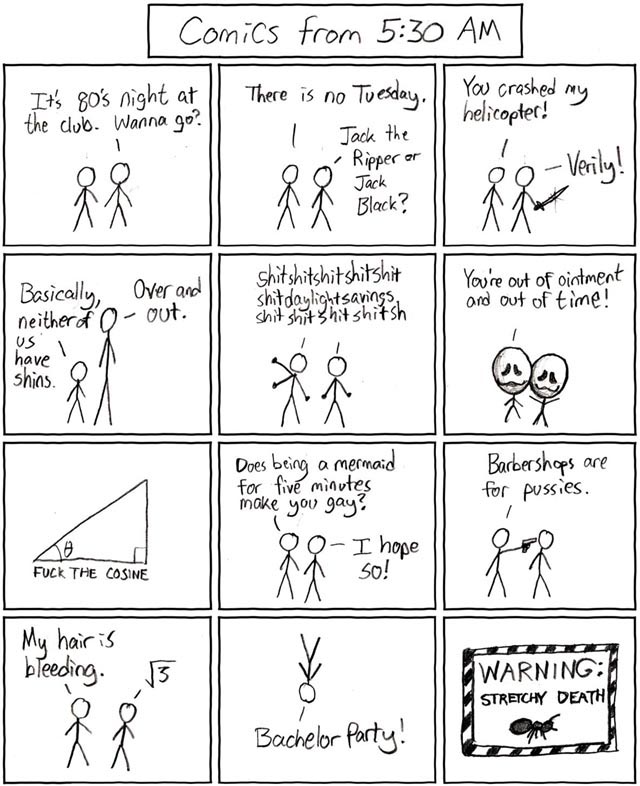 Comics from 5:30 AM
It's 80's night at
the club. Wanna go?
There is no Tuesday.
Jack the
Ripper or
Jack
Black?
You crashed my
helicopter!
Verily!
Basically,
neither of
us
have
shins.
Over and
out.
Shitshitshitshitshit
shitdaylightsavings
shitshitshitshitsh
You're out of ointment
and out of time!
θ
FUCK THE COSINE
Does being a mermaid
for five minutes
make you gay?
I hope
so!
Barbershops are
for pussies.
My hair is
bleeding.
√3
Bachelor Party!
WARNING:
STRETCHY DEATH